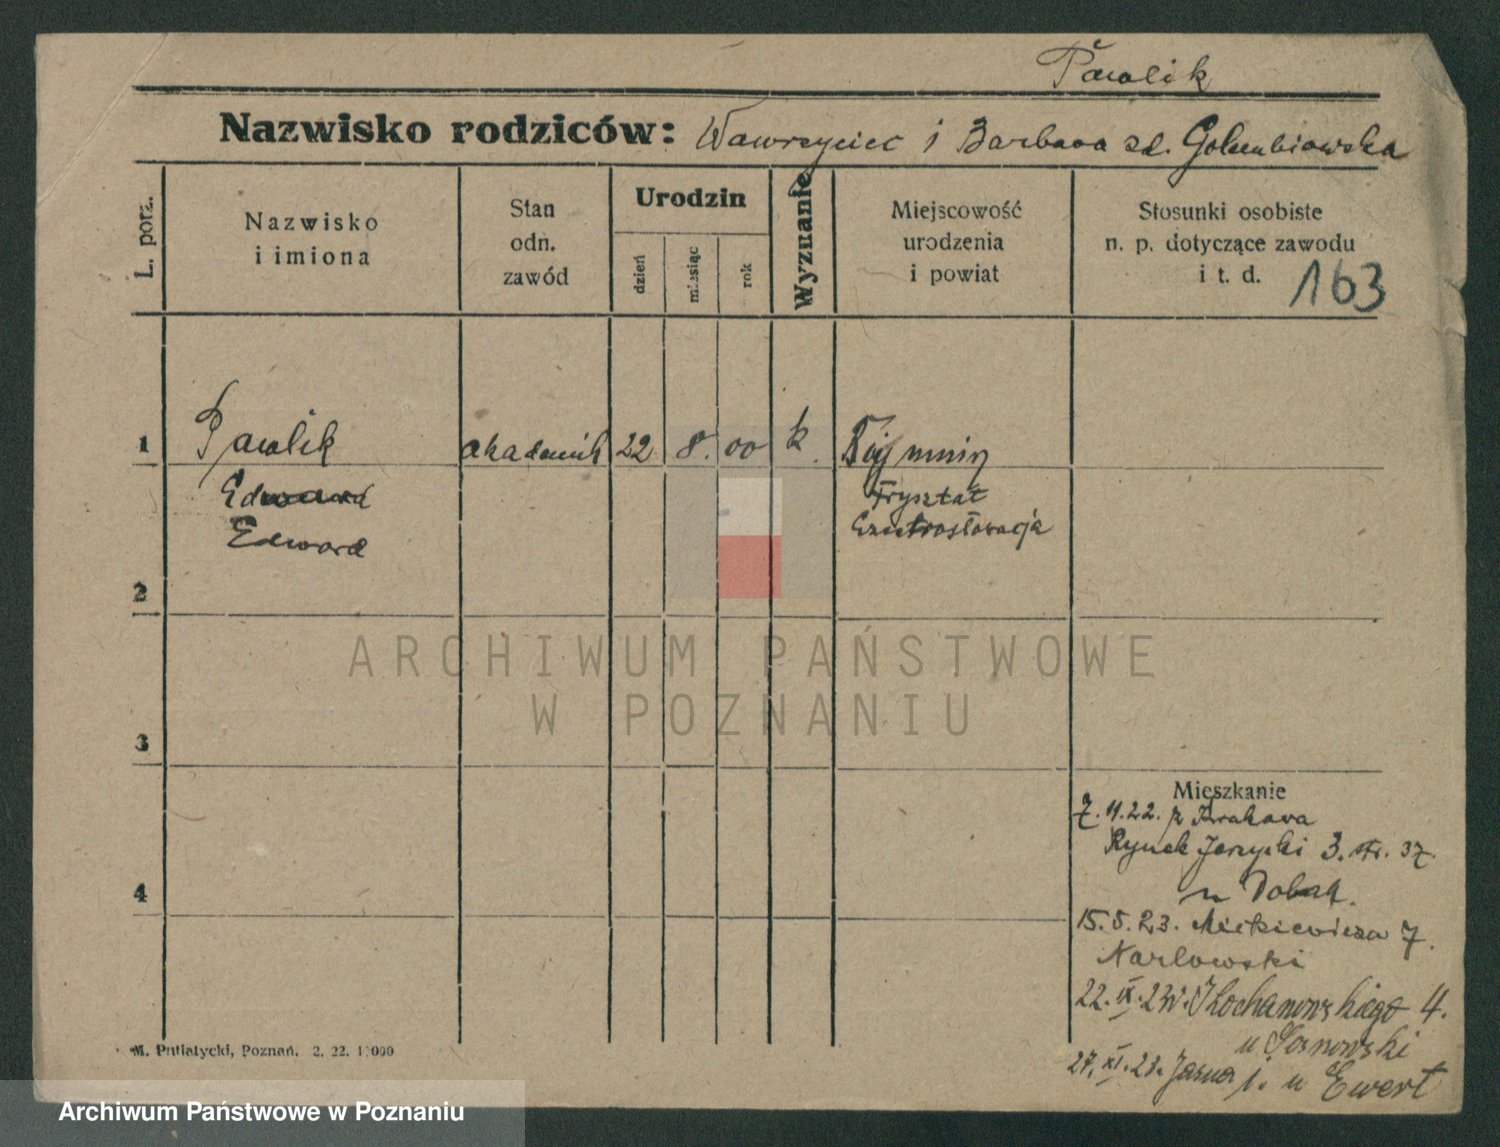 Pawlik
Nazwisko rodziców: Wawrzyniec i Barbara zd. Golembiowska
L. porz.
Nazwisko
i imiona
Stan
odn.
zawód
Urodzin
dzień
miesiąc
rok
Wyznanie
Miejscowość
urodzenia
i powiat
Stosunki osobiste
n. p. dotyczące zawodu
i t. d.
163
1
Pawlik
akademik
22
8.
00
k.
Edward
Edward
Frysztat
Czechosłowacja
2
3
4
ARCHIWUM PAŃSTWOWE
W POZNANIU
Mieszkanie
7.11.22. z Krakowa
Rynek Jerzycki 3. Str. 37.
u
15.5.23. Mickiewicza 7.
Karlowski
22.IX.23. Kochanowskiego 4.
u Sosnowski
27.XI.23. Jasna u Ewert
M. Putiatycki, Poznań. 2. 22.
Archiwum Państwowe w Poznaniu